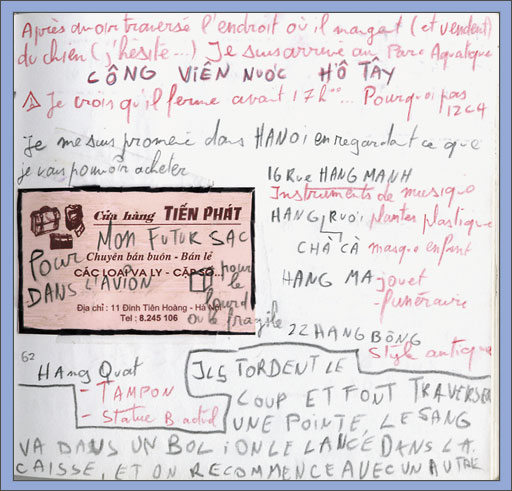 Après avoir traversé l'endroit où il mangent (et vendent)
du chien (j'hésite...) Je suis arrivé au Parc Aquatique
CÔNG VIÊN NƯỚC HÔ TÂY
Je crois qu'il ferme avant 17h00... Pourquoi pas
Je me suis promené dans HANOI en regardant ce que
je vais pouvoir acheter
16 Rue HANG MANH
Instruments de musique
HANG RUOI plantes plastique
CHẢ CÁ masque enfant
HANG MA jouet
- funéraire
22 HANG BÔNG
Style antique
Cửa hàng TIẾN PHÁT
MON FUTUR SAC
POUR
Chuyên bán buôn - Bán lẻ
CÁC LOẠI VA LY - CẶP SỐ...
DANS L'AVION
pour
le
lourd
ou le fragile
Địa chỉ : 11 Đinh Tiên Hoàng - Hà Nội
Tel : 8.245 106
62
HANG Quat
- TAMPON
- Statue
ILS TORDENT LE
COUP ET FONT TRAVERSER
UNE POINTE, LE SANG
VA DANS UN BOL ; ON LE LANCE DANS LA
CAISSE, ET ON RECOMMENCE AVEC UN AUTRE